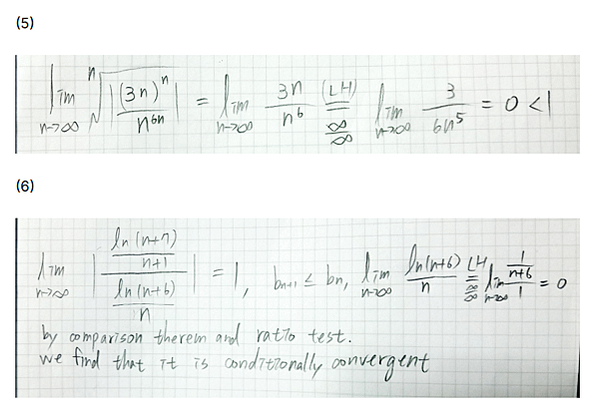 (5)
lim n→∞ ⁿ√|(3n)ⁿ / n⁶ⁿ| = lim n→∞ 3n / n⁶ (LH) = ∞/∞ lim n→∞ 3 / 6n⁵ = 0 < 1
(6)
lim n→∞ | (ln(n+7) / (n+1)) / (ln(n+6) / n) | = 1, bₙ₊₁ ≤ bₙ, lim n→∞ ln(n+6) / n LH = ∞/∞ lim n→∞ (1 / (n+6)) / 1 = 0
by comparison therem and ratio test.
we find that it is conditionally convergent